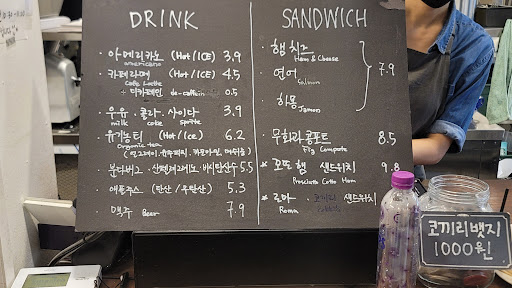 DRINK
아메리카노 (Hot/ICE) 3.9
americano
카페라떼 (Hot/ICE) 4.5
Caffe Latte
+ 디카페인 de-caffein 0.5
우유 · 콜라 · 사이다 3.9
milk coke sprite
유기농티 (Hot/Ice) 6.2
Organic tea
분다버그 · 산펠레그리노 · 배비탄산수 5.5
애플쥬스 (탄산/무탄산) 5.3
맥주 Beer 7.9
SANDWICH
햄 치즈
Ham & Cheese
연어 Salmon 7.9
하몽 Jamon
무화과 콤포트 8.5
Fig Compote
* 꼬또 햄 샌드위치 9.8
Prosciutto Cotto Ham
* 로마 샌드위치
Roma
코끼리뱃지
1000원